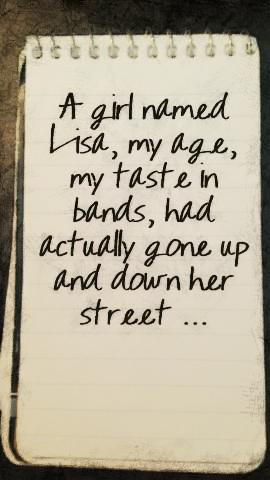 A girl named
Lisa, my age,
my taste in
bands, had
actually gone up
and down her
street ...